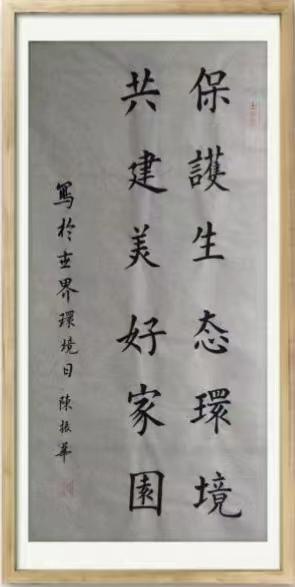 保護生态環境
共建美好家園
寫於世界環境日 陳振華